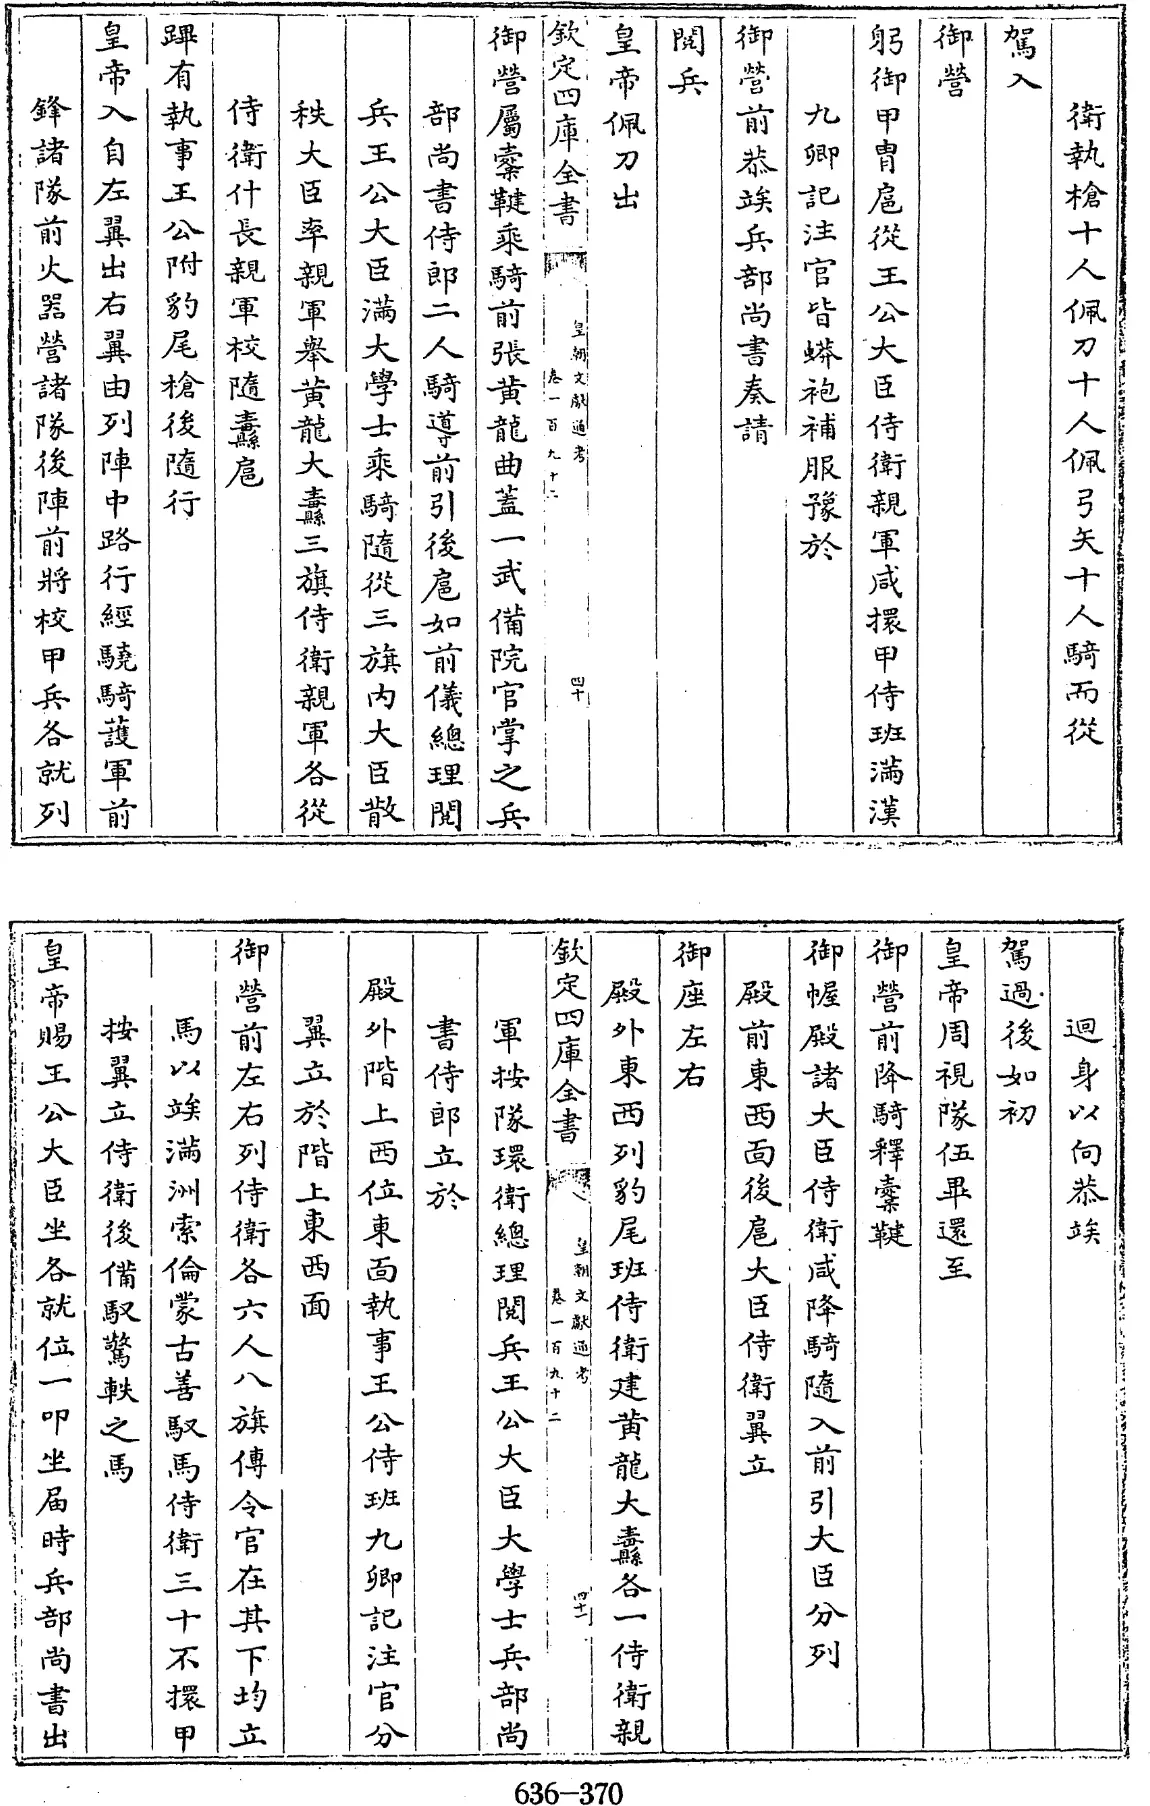 衛執槍十人佩刀十人佩弓矢十人騎而從
駕入
御營
躬御甲胄扈從王公大臣侍衛親軍咸擐甲侍班滿漢
九卿記注官皆蟒袍補服豫於
御營前恭竢兵部尚書奏請
閲兵
皇帝佩刀出
欽定四庫全書
皇朝文獻通考
卷一百九十二
四十
御營屬櫜鞬乘騎前張黄龍曲蓋一武備院官掌之兵
部尚書侍郎二人騎導前引後扈如前儀總理閲
兵王公大臣滿大學士乘騎隨從三旗内大臣散
秩大臣率親軍舉黄龍大纛三旗侍衛親軍各從
侍衛什長親軍校隨纛扈
蹕有執事王公附豹尾槍後隨行
皇帝入自左翼出右翼由列陣中路行經驍騎護軍前
鋒諸隊前火器營諸隊後陣前將校甲兵各就列
迴身以向恭竢
駕過後如初
皇帝周視隊伍畢還至
御營前降騎釋櫜鞬
御幄殿諸大臣侍衛咸降騎隨入前引大臣分列
殿前東西面後扈大臣侍衛翼立
御座左右
殿外東西列豹尾班侍衛建黄龍大纛各一侍衛親
欽定四庫全書
皇朝文獻通考
卷一百九十二
四十一
軍按隊環衛總理閲兵王公大臣大學士兵部尚
書侍郎立於
殿外階上西位東面執事王公侍班九卿記注官分
翼立於階上東西面
御營前左右列侍衛各六人八旗傳令官在其下均立
馬以竢滿洲索倫蒙古善馭馬侍衛三十不擐甲
按翼立侍衛後備馭驚軼之馬
皇帝賜王公大臣坐各就位一叩坐届時兵部尚書出
636-370